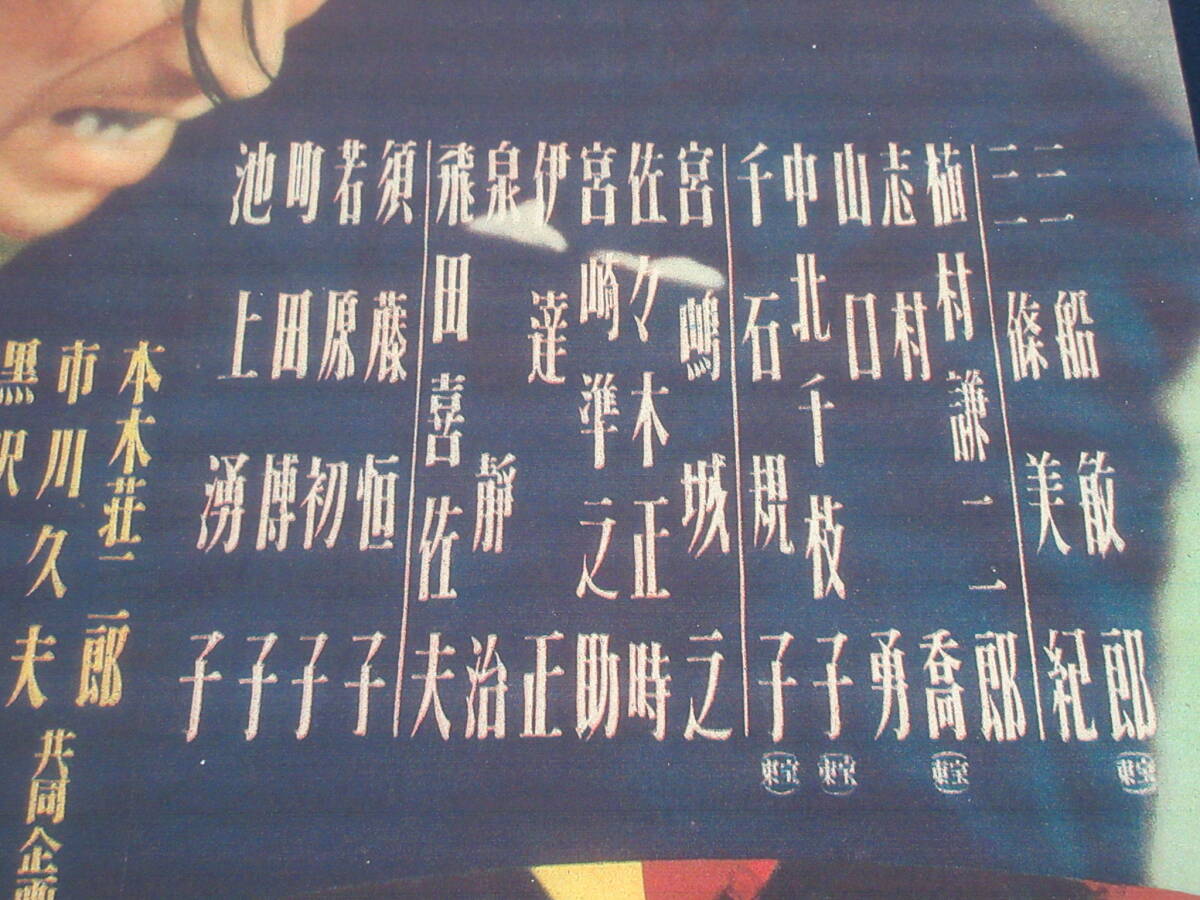 三船敏郎
東宝
三條美紀
植村謙二郎
志村喬
東宝
山口勇
中北千枝子
東宝
千石規子
東宝
宮嶋城之
佐々木正時
宮崎準之助
伊達正
泉静治
飛田喜佐夫
須藤恒子
若原初子
町田博子
池上湧子
本木荘二郎
市川久夫
共同企画